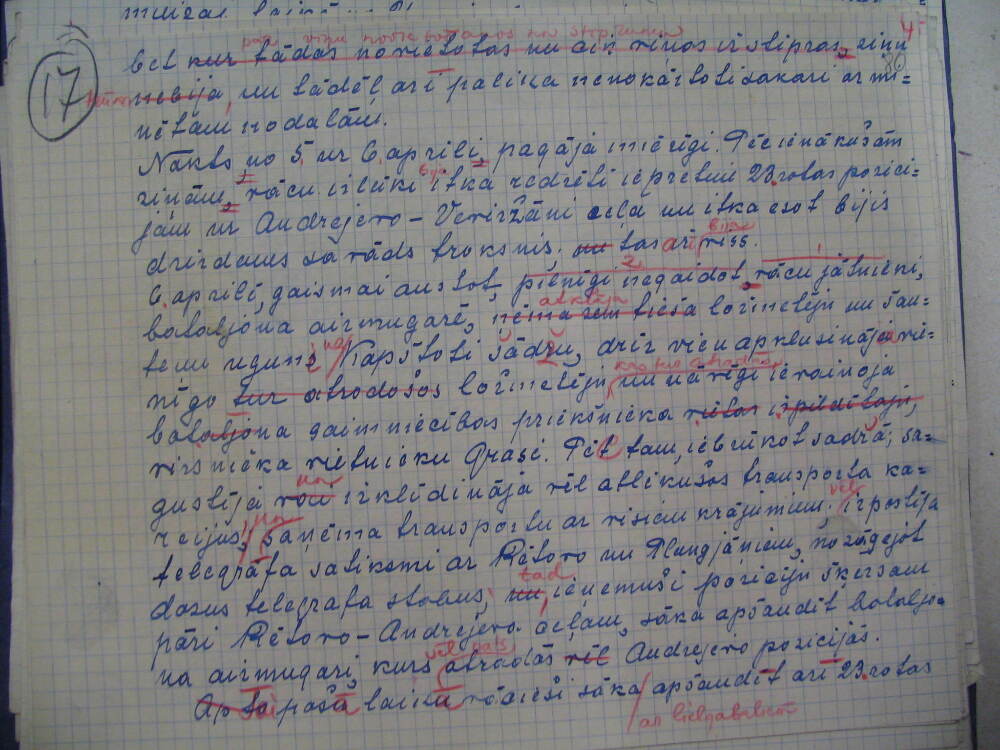 17
bet kur tādas novietotas un cik viņas ir stipras, ziņu
nebija, un tādēļ arī palika nenokārtoti sakari ar mi=
nētām nodaļām.
Nakts no 5. uz 6. aprili, pagāja mierīgi. Pēc ienākušām
ziņām, vācu izlūki bija it kā redzēti iepretim 23. rotas pozici=
jām uz Andrejevo – Veviržāni ceļa un it kā esot bijis
dzirdams savāds troksnis, un tas arī bija viss.
6. aprilī, gaismai austot, pilnīgi negaidot, vācu jātnieki,
bataljona aizmugurē, atklāja ložmetēju un šau=
teņu uguni Kapstoti sādžu, drīz vien apklusināja vie=
nīgo tur atrodošos ložmetēju, kas tur atradās un nāvīgi ievainoja
bataljona saimniecības priekšnieka vietas izpildītāju,
virsnieka vietnieku Grasi. Pēc tam, iebrūkot sādžā, sa=
gūstīja vai izklīdināja vēl atlikušos transporta ka=
reivjus, saņēma transportu ar visiem krājumiem, vēl izpostīja
telegrāfa satiksmi ar Rētovo un Plungjāniem, nozāģējot
dažus telegrafa stabus, un, tad ieņēmuši poziciju šķērsām
pāri Rētovo – Andrejevo ceļam, sāka apšaudīt bataljo=
na aizmuguri, kurš vēl pats atradās vēl Andrejevo pozicijās.
Ap to pašu laiku vācieši sāka apšaudīt arī 23. rotas
ar lielgabaliem